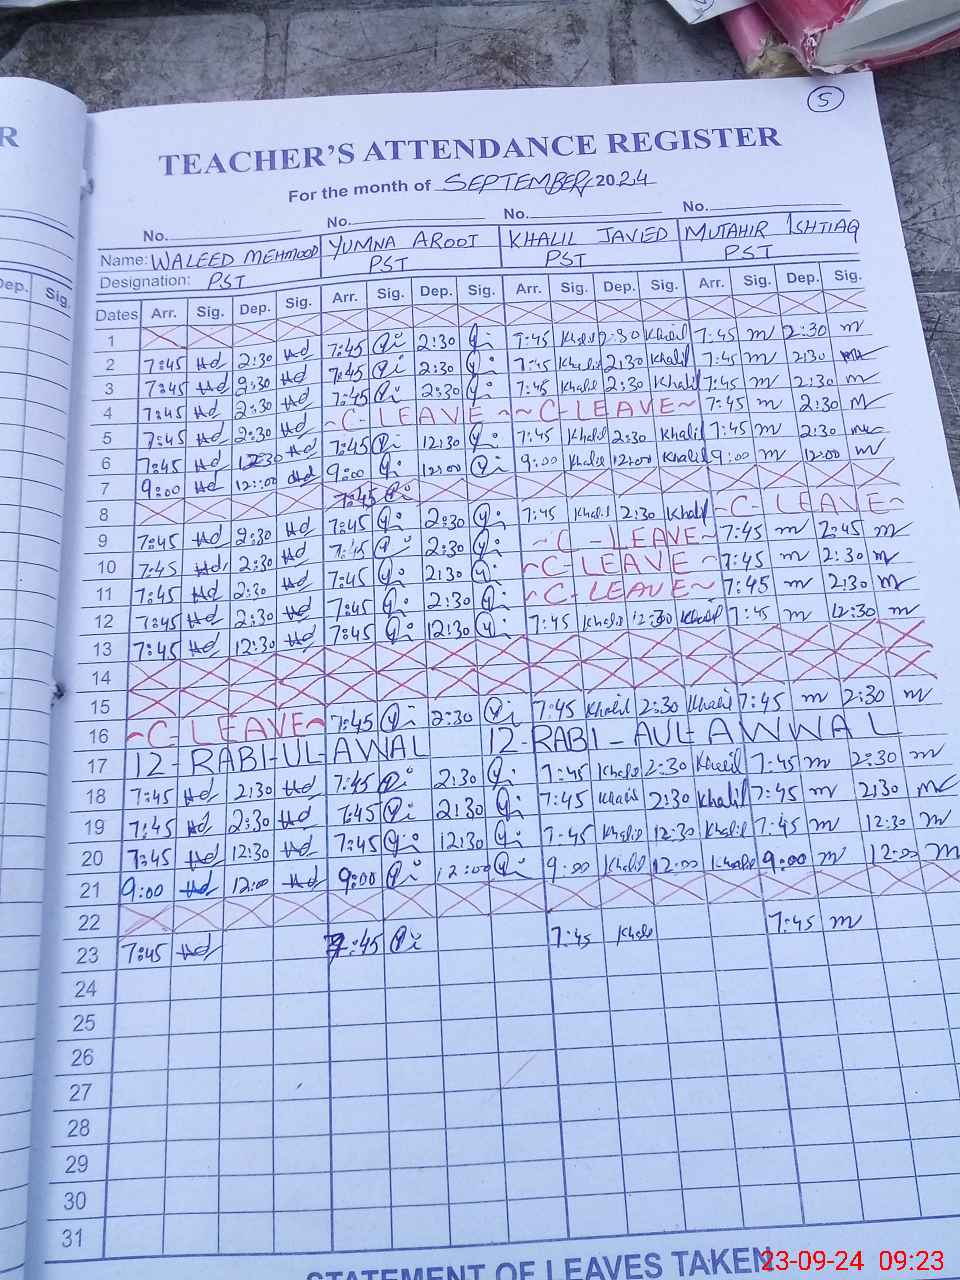 5
R
TEACHER'S ATTENDANCE REGISTER
For the month of SEPTEMBER, 2024
No. No. No. No.
Name: WALEED MEHMOOD YUMNA AROOJ KHALIL JAVIED MUTAHIR ISHTIAQ
Designation: PST PST PST PST
Dep. Sig.
Dates Arr. Sig. Dep. Sig. Arr. Sig. Dep. Sig. Arr. Sig. Dep. Sig. Arr. Sig. Dep. Sig.
1
2 7:45 2:30 7:45 2:30 7:45 Khalil 2:30 Khalil 7:45 m 2:30 m
3 7:45 2:30 7:45 2:30 7:45 Khalil 2:30 Khalil 7:45 m 2:30
4 7:45 2:30 7:45 2:30 7:45 Khalil 2:30 Khalil 7:45 m 2:30 m
5 7:45 2:30 ~C-LEAVE~ ~C-LEAVE~ 7:45 m 2:30 m
6 7:45 12:30 7:45 12:30 7:45 Khalil 2:30 Khalil 7:45 m 2:30
7 9:00 12:00 9:00 12:00 9:00 Khalil 12:00 Khalil 9:00 m 12:00 m
8 7:45
9 7:45 2:30 7:45 2:30 7:45 Khalil 2:30 Khalil ~C-LEAVE~
10 7:45 2:30 7:45 2:30 ~C-LEAVE~ 7:45 m 2:45 m
11 7:45 2:30 7:45 2:30 ~C-LEAVE~ 7:45 m 2:30 m
12 7:45 2:30 7:45 2:30 ~C-LEAVE~ 7:45 m 2:30 m
13 7:45 12:30 7:45 12:30 7:45 Khalil 12:30 Khalil 7:45 m 12:30 m
14
15
16 ~C-LEAVE~ 7:45 2:30 7:45 Khalil 2:30 Khalil 7:45 m 2:30 m
17 12-RABI-UL-AWAL 12-RABI-AUL-AWWAL
18 7:45 2:30 7:45 2:30 7:45 Khalil 2:30 Khalil 7:45 m 2:30 m
19 7:45 2:30 7:45 2:30 7:45 Khalil 2:30 Khalil 7:45 m 2:30
20 7:45 12:30 7:45 12:30 7:45 Khalil 12:30 Khalil 7:45 m 12:30 m
21 9:00 12:00 9:00 12:00 9:00 Khalil 12:00 Khalil 9:00 m 12:00 m
22
23 7:45 7:45 7:45 Khalil 7:45 m
24
25
26
27
28
29
30
31
STATEMENT OF LEAVES TAKEN
23-09-24 09:23